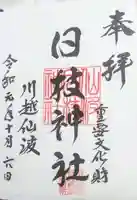 奉拝
重要文化財
日枝神社
川越仙波
令和元年十月六日